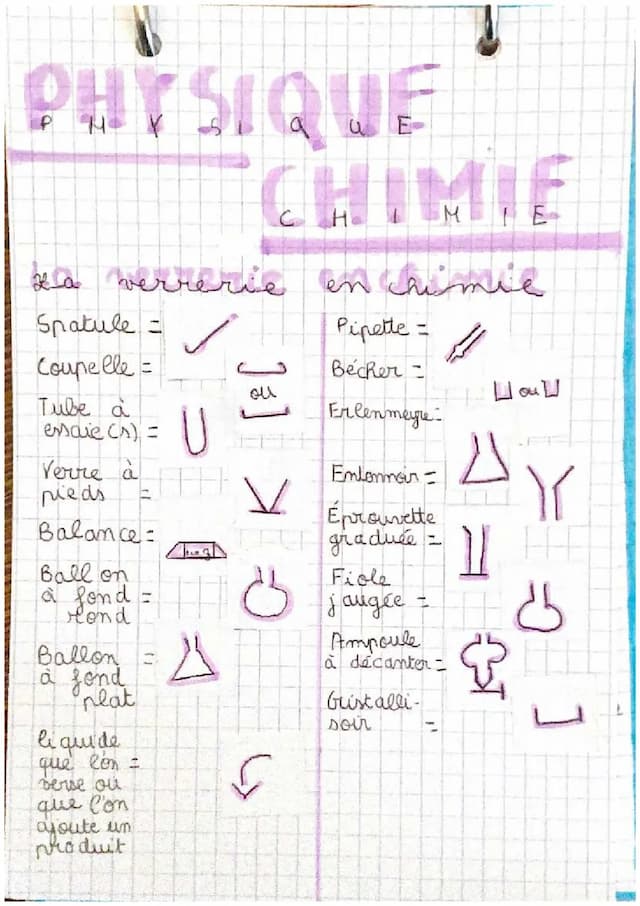 PHYSIQUE
PHYSIQUE
CHIMIE
CHIMIE
La verrerie en chimie
Spatule =
Coupelle =
ou
Tube à
essaie(s) =
Verre à
pieds =
Balance =
Ballon
à fond =
rond
Ballon =
à fond
plat
liquide
que l'on =
verse ou
que l'on
ajoute un
produit
Pipette =
Bécher =
ou
Erlenmeyre =
Entonnoir =
Éprouvette
graduée =
Fiole
jaugée =
Ampoule
à décanter =
Cristalli-
soir =